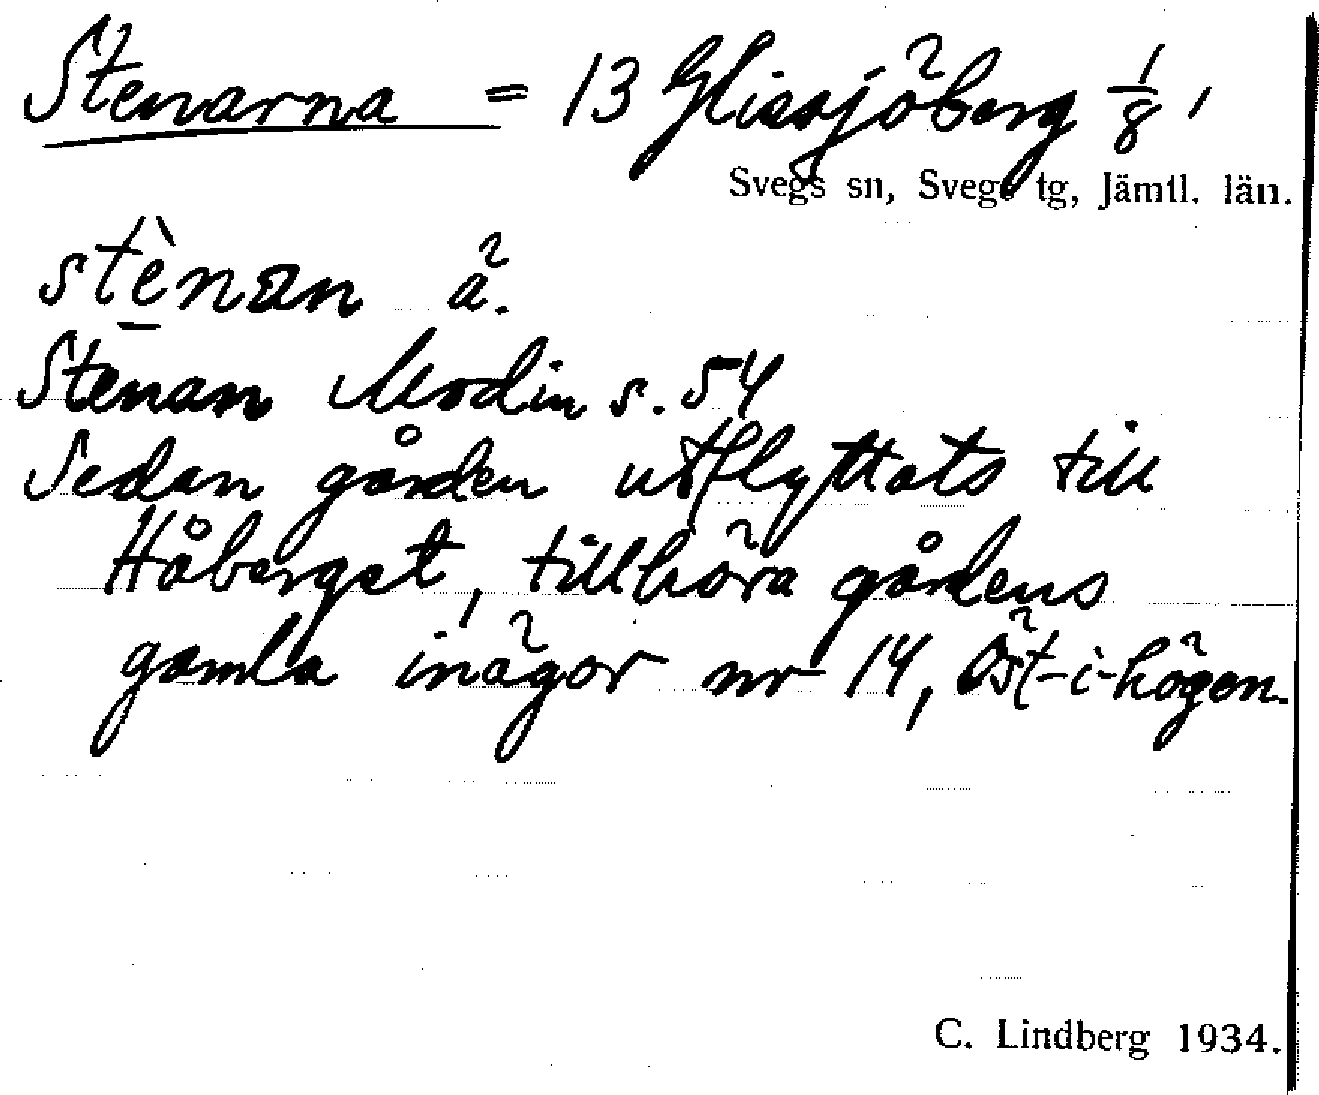 Stenarna = 13 Glissjöberg 1/8,
Svegs sn, Svegs tg, Jämtl. län.
stènan å̃.
Stenan Modin s. 54
Sedan gården utflyttats till
Håberget, tillhöra gårdens
gamla inägor nr 14, Öst-i-högen.
C. Lindberg 1934.